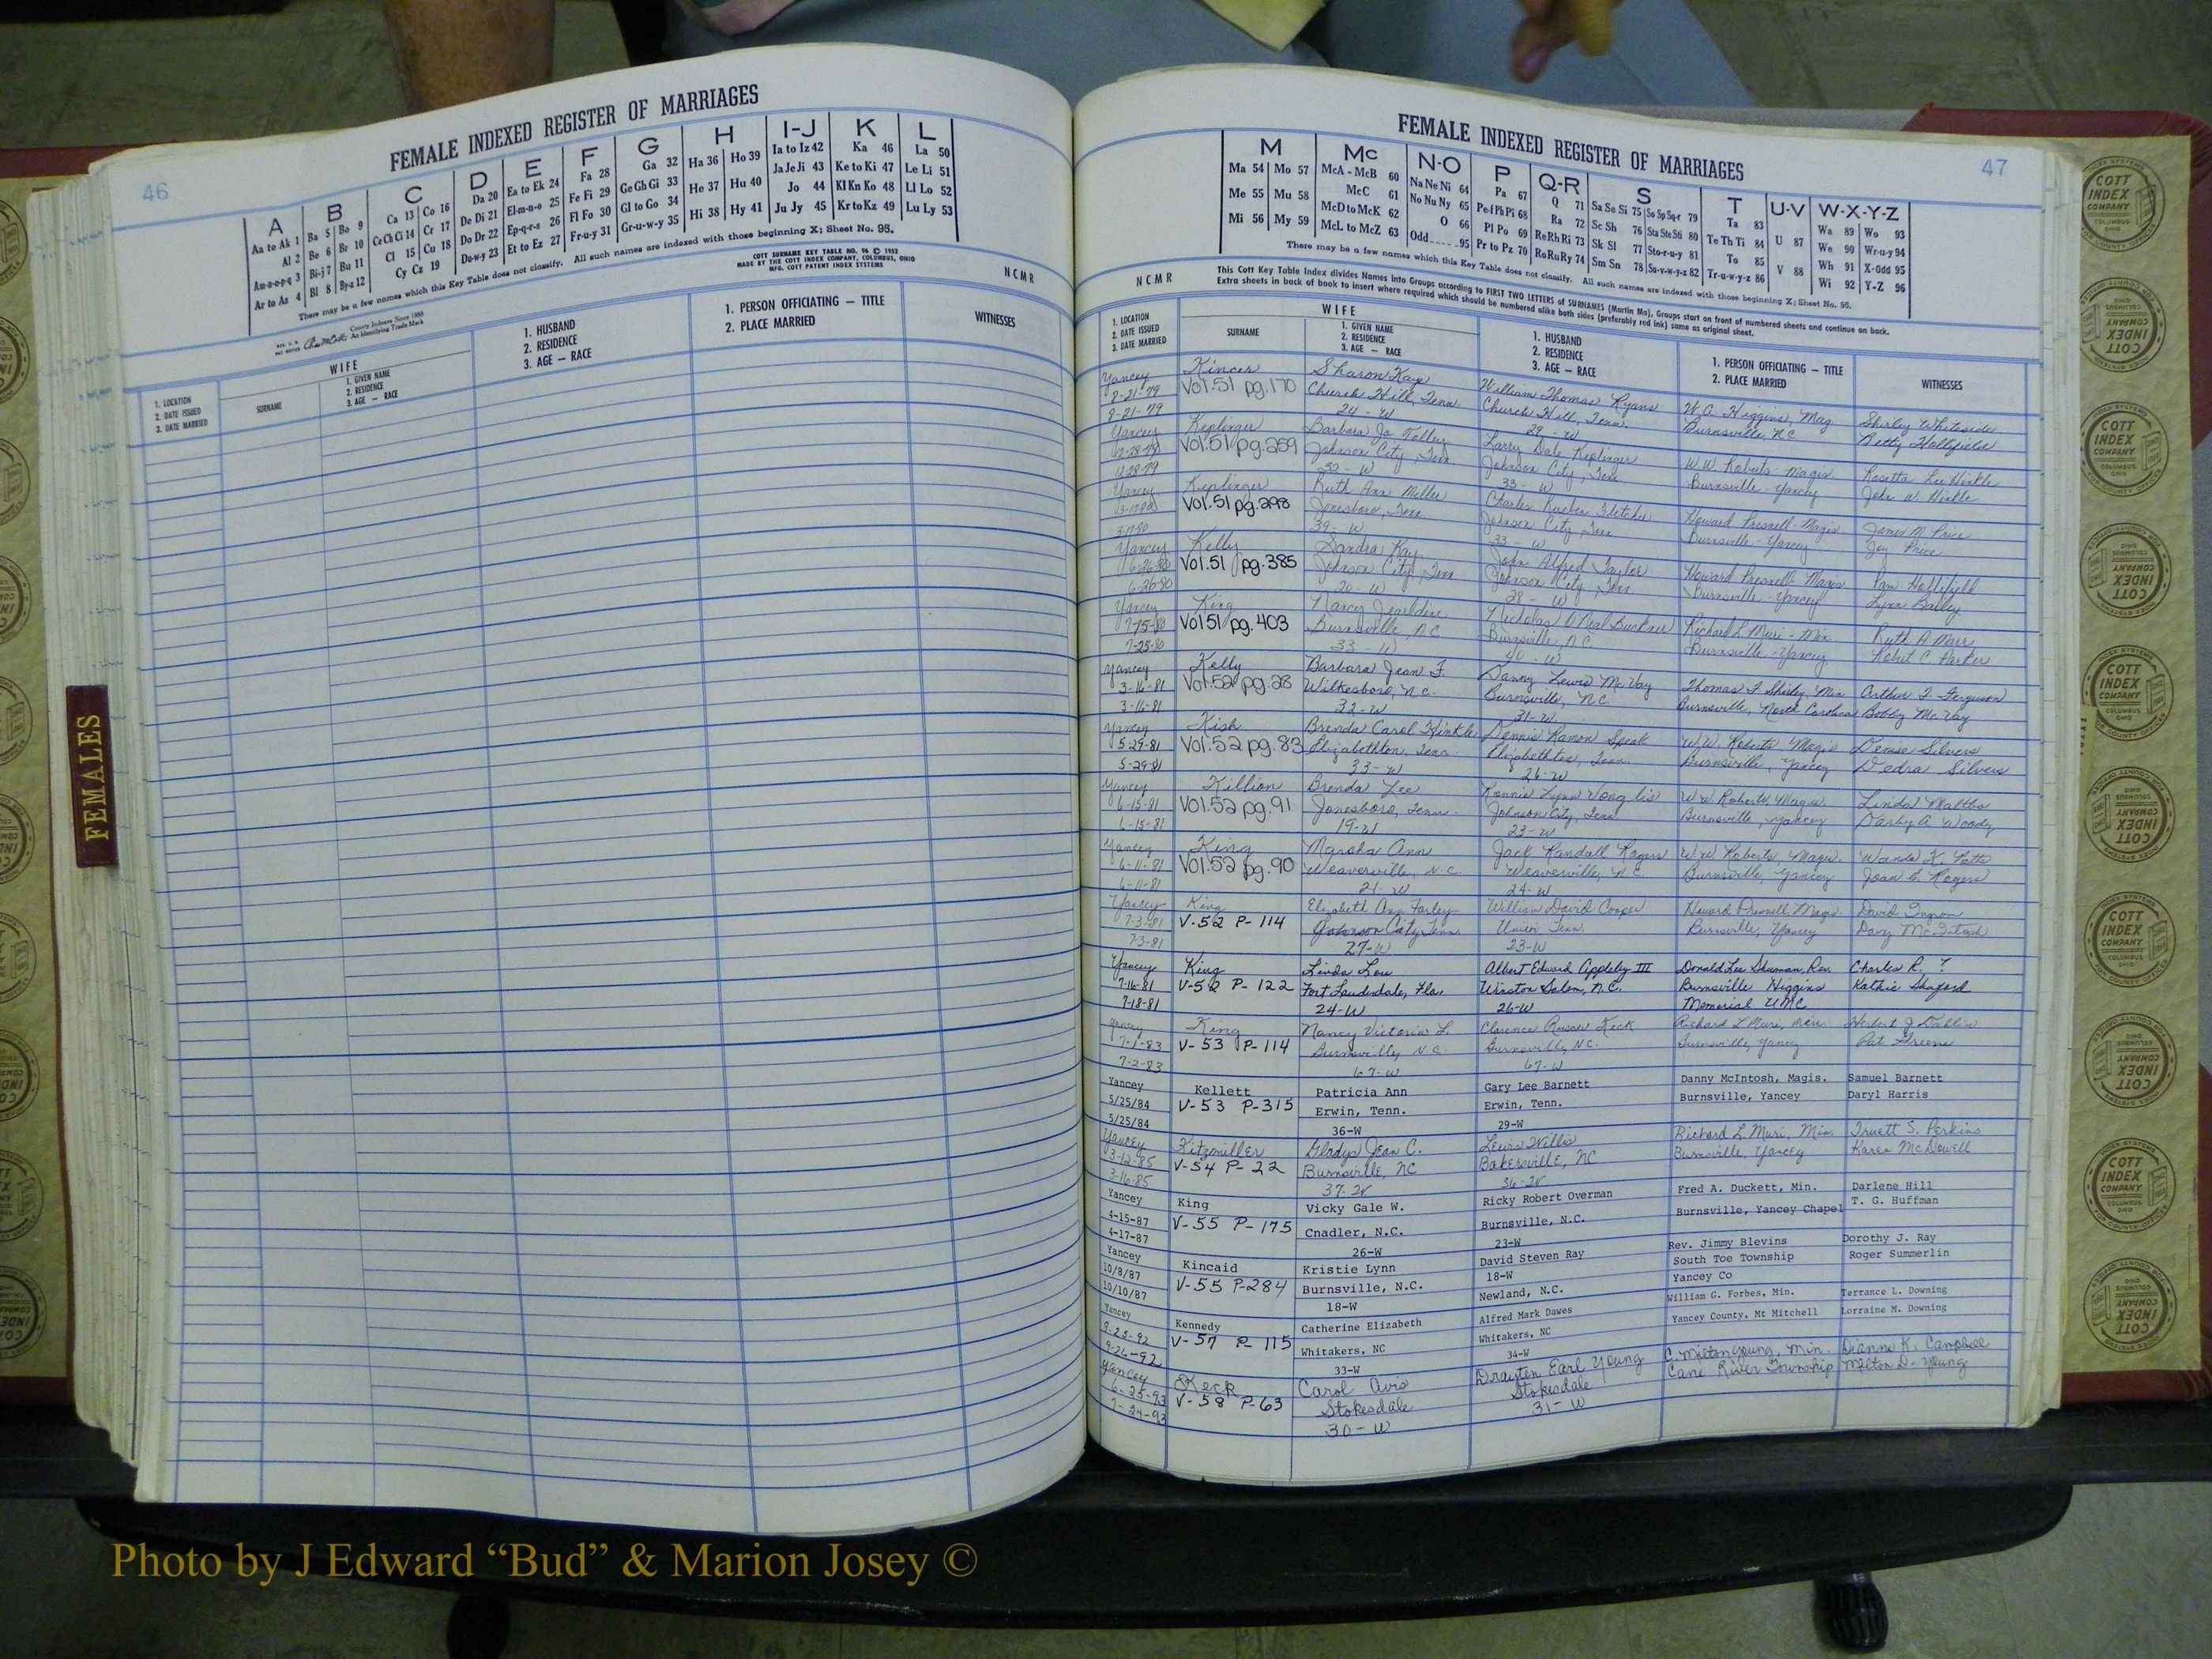 46
FEMALE INDEXED REGISTER OF MARRIAGES
A
Aa to Ak 1
Al 2
Am-n-o-p-q 3
Ar to Az 4
B
Ba 5 Bo 9
Be 6 Br 10
Bi-j-7 Bu 11
Bl 8 By-z 12
C
Ca 13 Co 16
Ce Ch Ci 14 Cr 17
Cl 15 Cu 18
Cy Cz 19
D
Da 20
De Di 21
Do Dr 22
Du-w-y 23
E
Ea to Ek 24
El-m-n-o 25
Ep-q-r-s 26
Et to Ez 27
F
Fa 28
Fe Fi 29
Fl Fo 30
Fr-u-y 31
G
Ga 32
Ge Gh Gi 33
Gl to Go 34
Gr-u-w-y 35
H
Ha 36 Ho 39
He 37 Hu 40
Hi 38 Hy 41
I-J
Ia to Iz 42
Ja Je Ji 43
Jo 44
Ju Jy 45
K
Ka 46
Ke to Ki 47
Kl Kn Ko 48
Kr to Kz 49
L
La 50
Le Li 51
Ll Lo 52
Lu Ly 53
There may be a few names which this Key Table does not classify. All such names are indexed with those beginning X; Sheet No. 95.
County Indexes Since 1888
An Identifying Trade Mark
COTT SURNAME KEY TABLE NO. 96 © 1952
MADE BY THE COTT INDEX COMPANY, COLUMBUS, OHIO
MFG. COTT PATENT INDEX SYSTEMS
NCMR
1. LOCATION
2. DATE ISSUED
3. DATE MARRIED
WIFE
SURNAME
1. GIVEN NAME
2. RESIDENCE
3. AGE — RACE
1. HUSBAND
2. RESIDENCE
3. AGE — RACE
1. PERSON OFFICIATING — TITLE
2. PLACE MARRIED
WITNESSES
FEMALES
FEMALE INDEXED REGISTER OF MARRIAGES
47
M
Ma 54 Mo 57
Me 55 Mu 58
Mi 56 My 59
Mc
McA - McB 60
McC 61
McD to McK 62
McL to McZ 63
N-O
Na Ne Ni 64
No Nu Ny 65
O 66
Odd 95
P
Pa 67
Pe-f Ph Pi 68
Pl Po 69
Pr to Pz 70
Q-R
Q 71
Ra 72
Re Rh Ri 73
Ro Ru Ry 74
S
Sa Se Si 75 So Sp Sq-r 79
Sc Sh 76 Sta Ste Sti 80
Sk Sl 77 Sto-r-u-y 81
Sm Sn 78 Su-v-w-y-z 82
T
Ta 83
Te Th Ti 84
To 85
Tr-u-w-y-z 86
U-V
U 87
V 88
W-X-Y-Z
Wa 89 Wo 93
We 90 Wr-u-y 94
Wh 91 X-Odd 95
Wi 92 Y-Z 96
There may be a few names which this Key Table does not classify. All such names are indexed with those beginning X; Sheet No. 95.
NCMR
This Cott Key Table Index divides Names into Groups according to FIRST TWO LETTERS of SURNAMES (Martin Ma), Groups start on front of numbered sheets and continue on back.
Extra sheets in back of book to insert where required which should be numbered alike both sides (preferably red ink) same as original sheet.
1. LOCATION
2. DATE ISSUED
3. DATE MARRIED
WIFE
SURNAME
1. GIVEN NAME
2. RESIDENCE
3. AGE — RACE
1. HUSBAND
2. RESIDENCE
3. AGE — RACE
1. PERSON OFFICIATING — TITLE
2. PLACE MARRIED
WITNESSES
Yancey Kincer Sharon Kaye William Thomas Ryans W.A. Higgins, Mag Shirley Whiteside
8-21-79 Vol.51 pg.170 Church Hill, Tenn. Church Hill, Tenn. Burnsville, NC Betty Hollifield
8-21-79 24 - W 29 - W
Yancey Keplinger Barbara Jo Tolley Larry Dale Keplinger W.W. Roberts - Magis. Rosetta Lee Hinkle
12-28-79 Vol.51 pg.259 Johnson City, Tenn Johnson City, Tenn Burnsville - Yancey John W. Hinkle
12-28-79 32 - W 33 - W
Yancey Keplinger Ruth Ann Miller Charles Fletcher Howard Presnell - Magis James M. Price
3-17-80 Vol.51 pg.298 Jonesboro, Tenn Johnson City, Tenn Burnsville - Yancey Joy Price
3-17-80 39 - W 33 - W
Yancey Kelly Sandra Kay John Alfred Taylor Howard Presnell - Magis Pam Hollifield
6-26-80 Vol.51 pg.385 Johnson City, Tenn Johnson City, Tenn Burnsville - Yancey Lynn Bailey
6-26-80 20 - W 28 - W
Yancey King Nancy Jearldine Nicholas O'Neal Buckner Richard L. Muri - Min Ruth A. Marr
7-15-80 Vol 51 pg. 403 Burnsville, N.C. Burnsville, N.C. Burnsville - Yancey Robert C. Parker
7-25-80 33 - W 40 - W
Yancey Kelly Barbara Jean F. Danny Lewis McVay Thomas F Shirley, Min Arthur F. Ferguson
3-16-81 Vol.52 pg.28 Wilkesboro, N.C. Burnsville, N.C. Burnsville, North Carolina Bobby McVay
3-16-81 32-W 31-W
Yancey Kish Brenda Carol Hinkle Dennis Ramon Speak W.W. Roberts Magis Denise Silvers
5-29-81 Vol.52 pg.83 Elizabethton, Tenn. Elizabethton, Tenn. Burnsville, Yancey Dedra Silvers
5-29-81 33-W 26-W
Yancey Killion Brenda Lee Ronnie Lynn W.W. Roberts Magis. Linda Maltba
6-15-81 Vol.52 pg.91 Jonesboro, Tenn. Johnson City, Tenn. Burnsville, Yancey Darby A Woody
6-15-81 19-W 23-W
Yancey King Marsha Ann Jack Randall Rogers W.W. Roberts, Magis. Wanda K. Potts
6-11-81 Vol.52 pg.90 Weaverville, N.C. Weaverville, N.C. Burnsville, Yancey Joan C. Rogers
6-11-81 21-W 24-W
Yancey King Elizabeth Ann Farley William David Cooper Howard Presnell, Magis. David Ingram
7-3-81 V-52 P-114 Johnson City Tenn. Unicoi, Tenn. Burnsville, Yancey Davy McIntosh
7-3-81 27-W 23-W
Yancey King Linda Lou Albert Edward Appleby III Donald Lee Shuman, Rev. Charles R. ?
7-16-81 V-52 P-122 Fort Lauderdale, Fla. Winston Salem, N.C. Burnsville Higgins Kathie Shaford
7-18-81 24-W 26-W Memorial UMC
Yancey King Nancy Victoria L. Clarence Keck Richard L Muri, Min. Herbert J Dahlin
7-1-83 V-53 P-114 Burnsville, N.C. Burnsville, N.C. Burnsville, Yancey Pat Greene
7-2-83 67-W 67-W
Yancey Kellett Patricia Ann Gary Lee Barnett Danny McIntosh, Magis. Samuel Barnett
5/25/84 V-53 P-315 Erwin, Tenn. Erwin, Tenn. Burnsville, Yancey Daryl Harris
5/25/84 36-W 29-W
Yancey Kitzmiller Gladys Jean C. Lewis Willis Richard L. Muri, Min. Truett S. Perkins
3-12-85 V-54 P-22 Burnsville, NC Bakersville, NC Burnsville, Yancey Karen McDowell
3-16-85 37-W 36-W
Yancey King Vicky Gale W. Ricky Robert Overman Fred A. Duckett, Min. Darlene Hill
4-15-87 V-55 P-175 Cnadler, N.C. Burnsville, N.C. Burnsville, Yancey Chapel T. G. Huffman
4-17-87 26-W 23-W
Yancey Kincaid Kristie Lynn David Steven Ray Rev. Jimmy Blevins Dorothy J. Ray
10/8/87 V-55 P-284 Burnsville, N.C. 18-W South Toe Township Roger Summerlin
10/10/87 18-W Newland, N.C. Yancey Co
Yancey Kennedy Catherine Elizabeth Alfred Mark Dawes William G. Forbes, Min. Terrance L. Downing
9-25-92 V-57 P-115 Whitakers, NC Whitakers, NC Yancey County, Mt Mitchell Lorraine M. Downing
9-26-92 33-W 34-W
Yancey Keck Carol Avis Drayten Earl Young C. Milton Young, Min. Dianne K. Campbell
6-25-93 V-58 P-63 Stokesdale Stokesdale Cane River Township Milton D. Young
7-24-93 30-W 31-W
COTT INDEX COMPANY COLUMBUS OHIO
Photo by J Edward “Bud” & Marion Josey ©